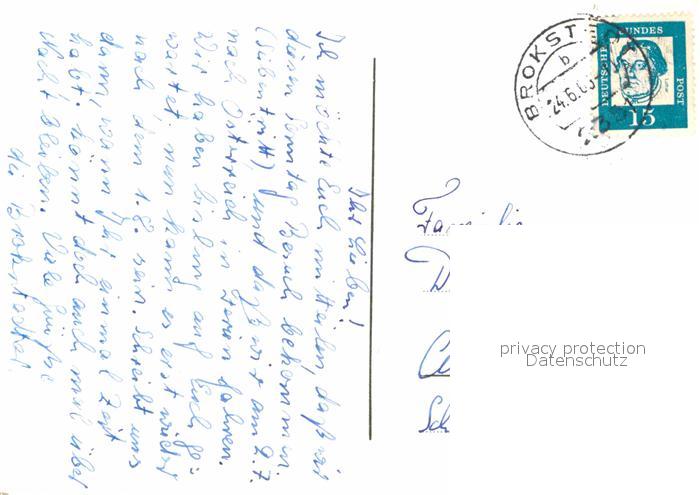 Ihr Lieben!
Ich möchte Euch mitteilen, daß wir
diesen Sonntag Besuch bekommen
und daß wir am 2.7.
nach Österreich in Ferien fahren.
Wir haben bislang auf Euch ge-
wartet. nun kann es erst wieder
nach dem 1.8. sein. Schreibt uns
dann, wann Ihr einmal Zeit
habt. Könnt doch auch mal über
Nacht bleiben. Viele Grüße
die Brokstedter.
BROKST
b
24.6.6
DEUTSCHE
BUNDES
POST
15
Familie
D
Sch
privacy protection
Datenschutz